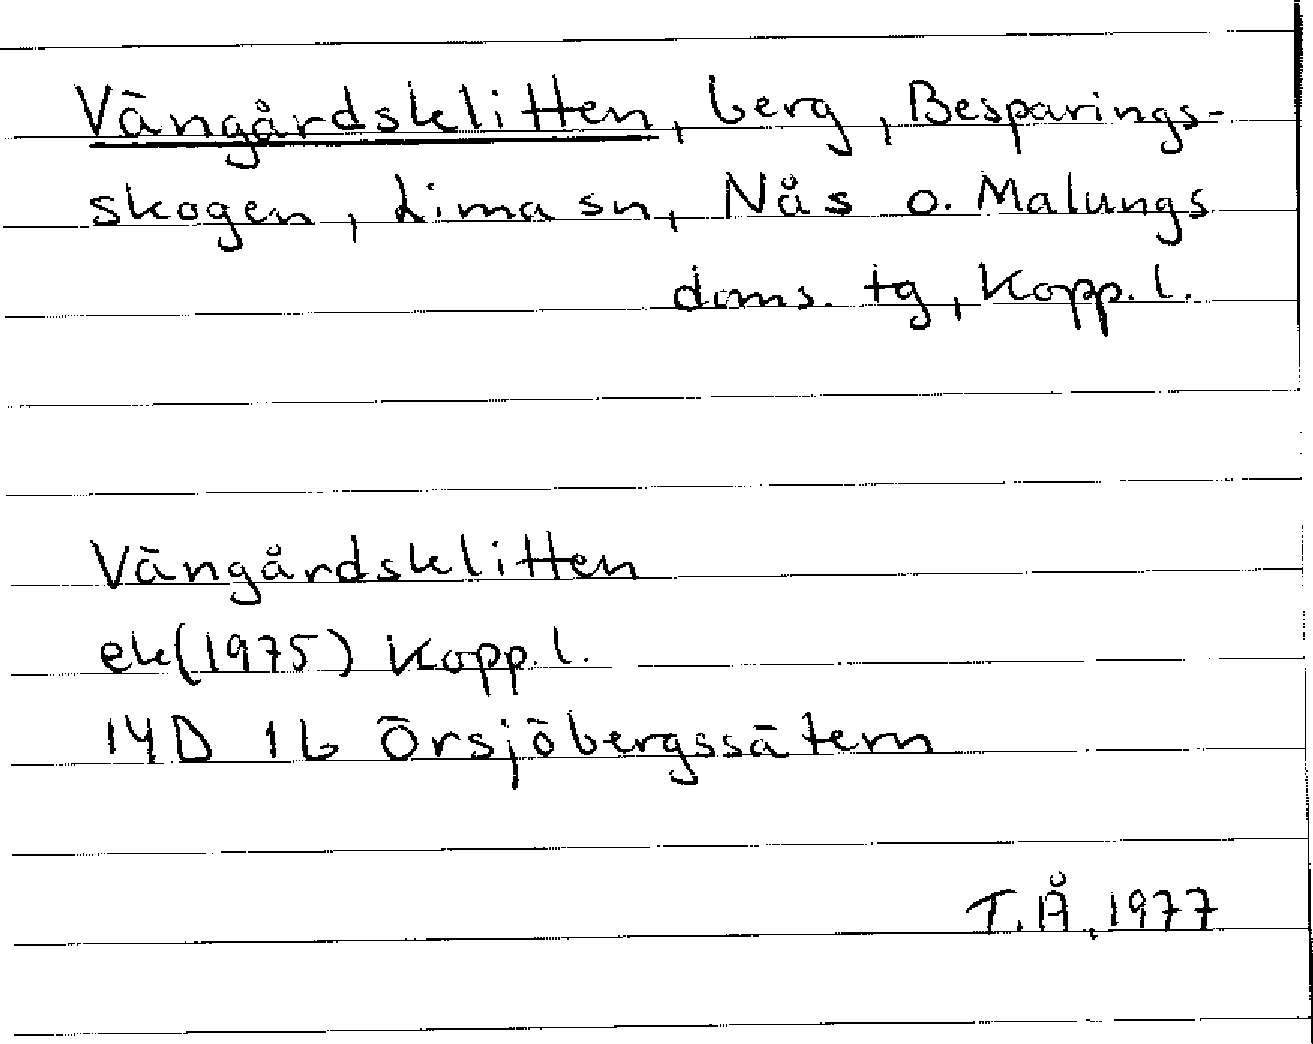 Vängårdsklitten, berg, Besparings-
skogen, Lima sn, Nås o. Malungs
doms. tg, Kopp. l.
Vängårdsklitten
ek(1975) Kopp. l.
14D 1b Örsjöbergssätern
T.Å, 1977